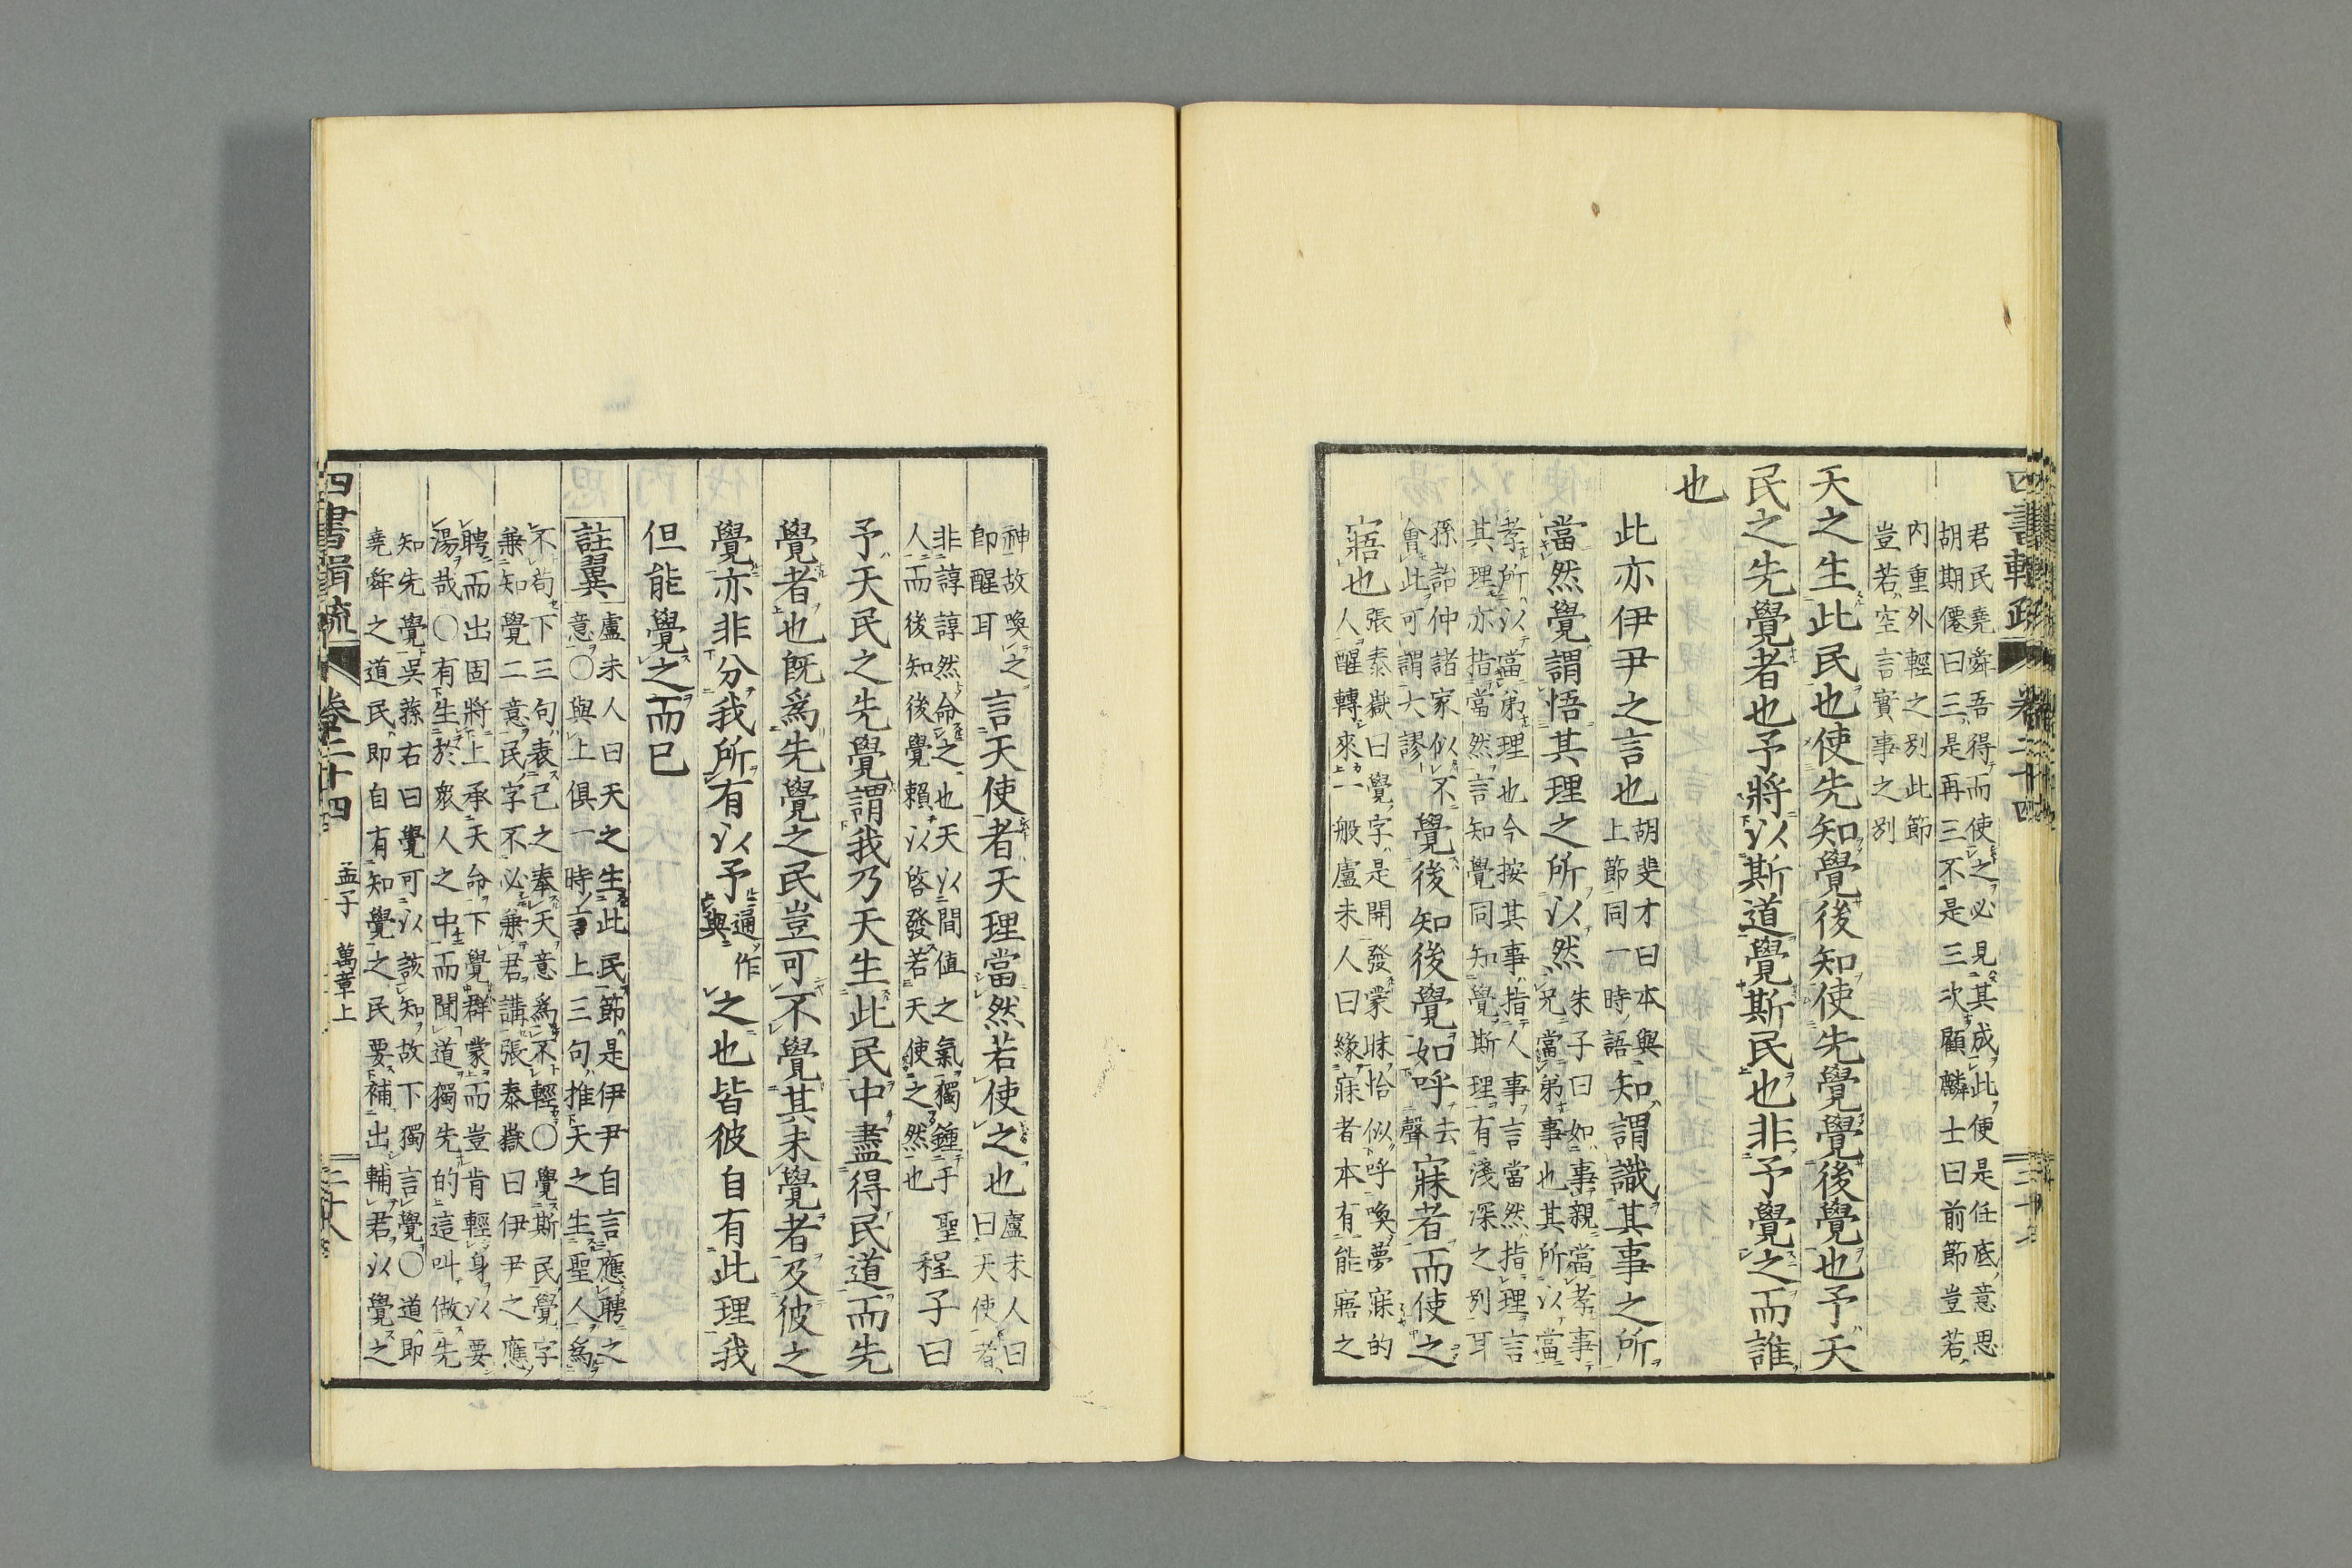 君民堯舜吾得而使之必見其成此便是任底意思
胡期僊曰三是再三不是三次顧麟士曰前節豈若
內重外輕之別此節
豈若空言實事之別
天之生此民也使先知覺後知使先覺覺後覺也予天
民之先覺者也予將以斯道覺斯民也非予覺之而誰
也
此亦伊尹之言也
胡斐才曰本與
上節同一時語
知謂識其事之所
當然覺謂悟其理之所以然
朱子曰如事親當孝事
兄當弟事也其所以當
孝所以當弟理也今按其事指人事言當然指理言
其理亦指當然言知覺同知覺斯理有淺深之別耳
孫詒仲諸家似不
會此可謂大謬
覺後知後覺如呼
去
聲
寐者而使之
寤也
張泰嶽曰覺字是開發蒙昧恰似呼喚夢寐的
人醒轉來一般盧未人曰緣寐者本有能寤之
神故喚之
即醒耳
言天使者天理當然若使之也
盧未人曰
天使者
非諄諄然命之也天以間值之氣獨鍾于聖
人而後知後覺賴以啓發若天使之然也
程子曰
予天民之先覺謂我乃天生此民中盡得民道而先
覺者也既爲先覺之民豈可不覺其未覺者及彼之
覺亦非分我所有以予
逼作
與
之也皆彼自有此理我
但能覺之而已
註翼
盧未人曰天之生此民節是伊尹自言應聘之
意〇與上俱一時言上三句推天之生聖人爲
不苟下三句表己之奉天意爲不輕〇覺斯民覺字
兼知覺二意民字不必兼君講張泰嶽曰伊尹之應
聘而出固將上承天命下覺群蒙而豈肯輕身以要
湯哉〇有生於衆人之中而聞道獨先的這叫做先
知先覺吳蓀右曰覺可以該知故下獨言覺〇道即
堯舜之道民即自有知覺之民要補出輔君以覺之
卷二十四
孟子 萬章上
二十八